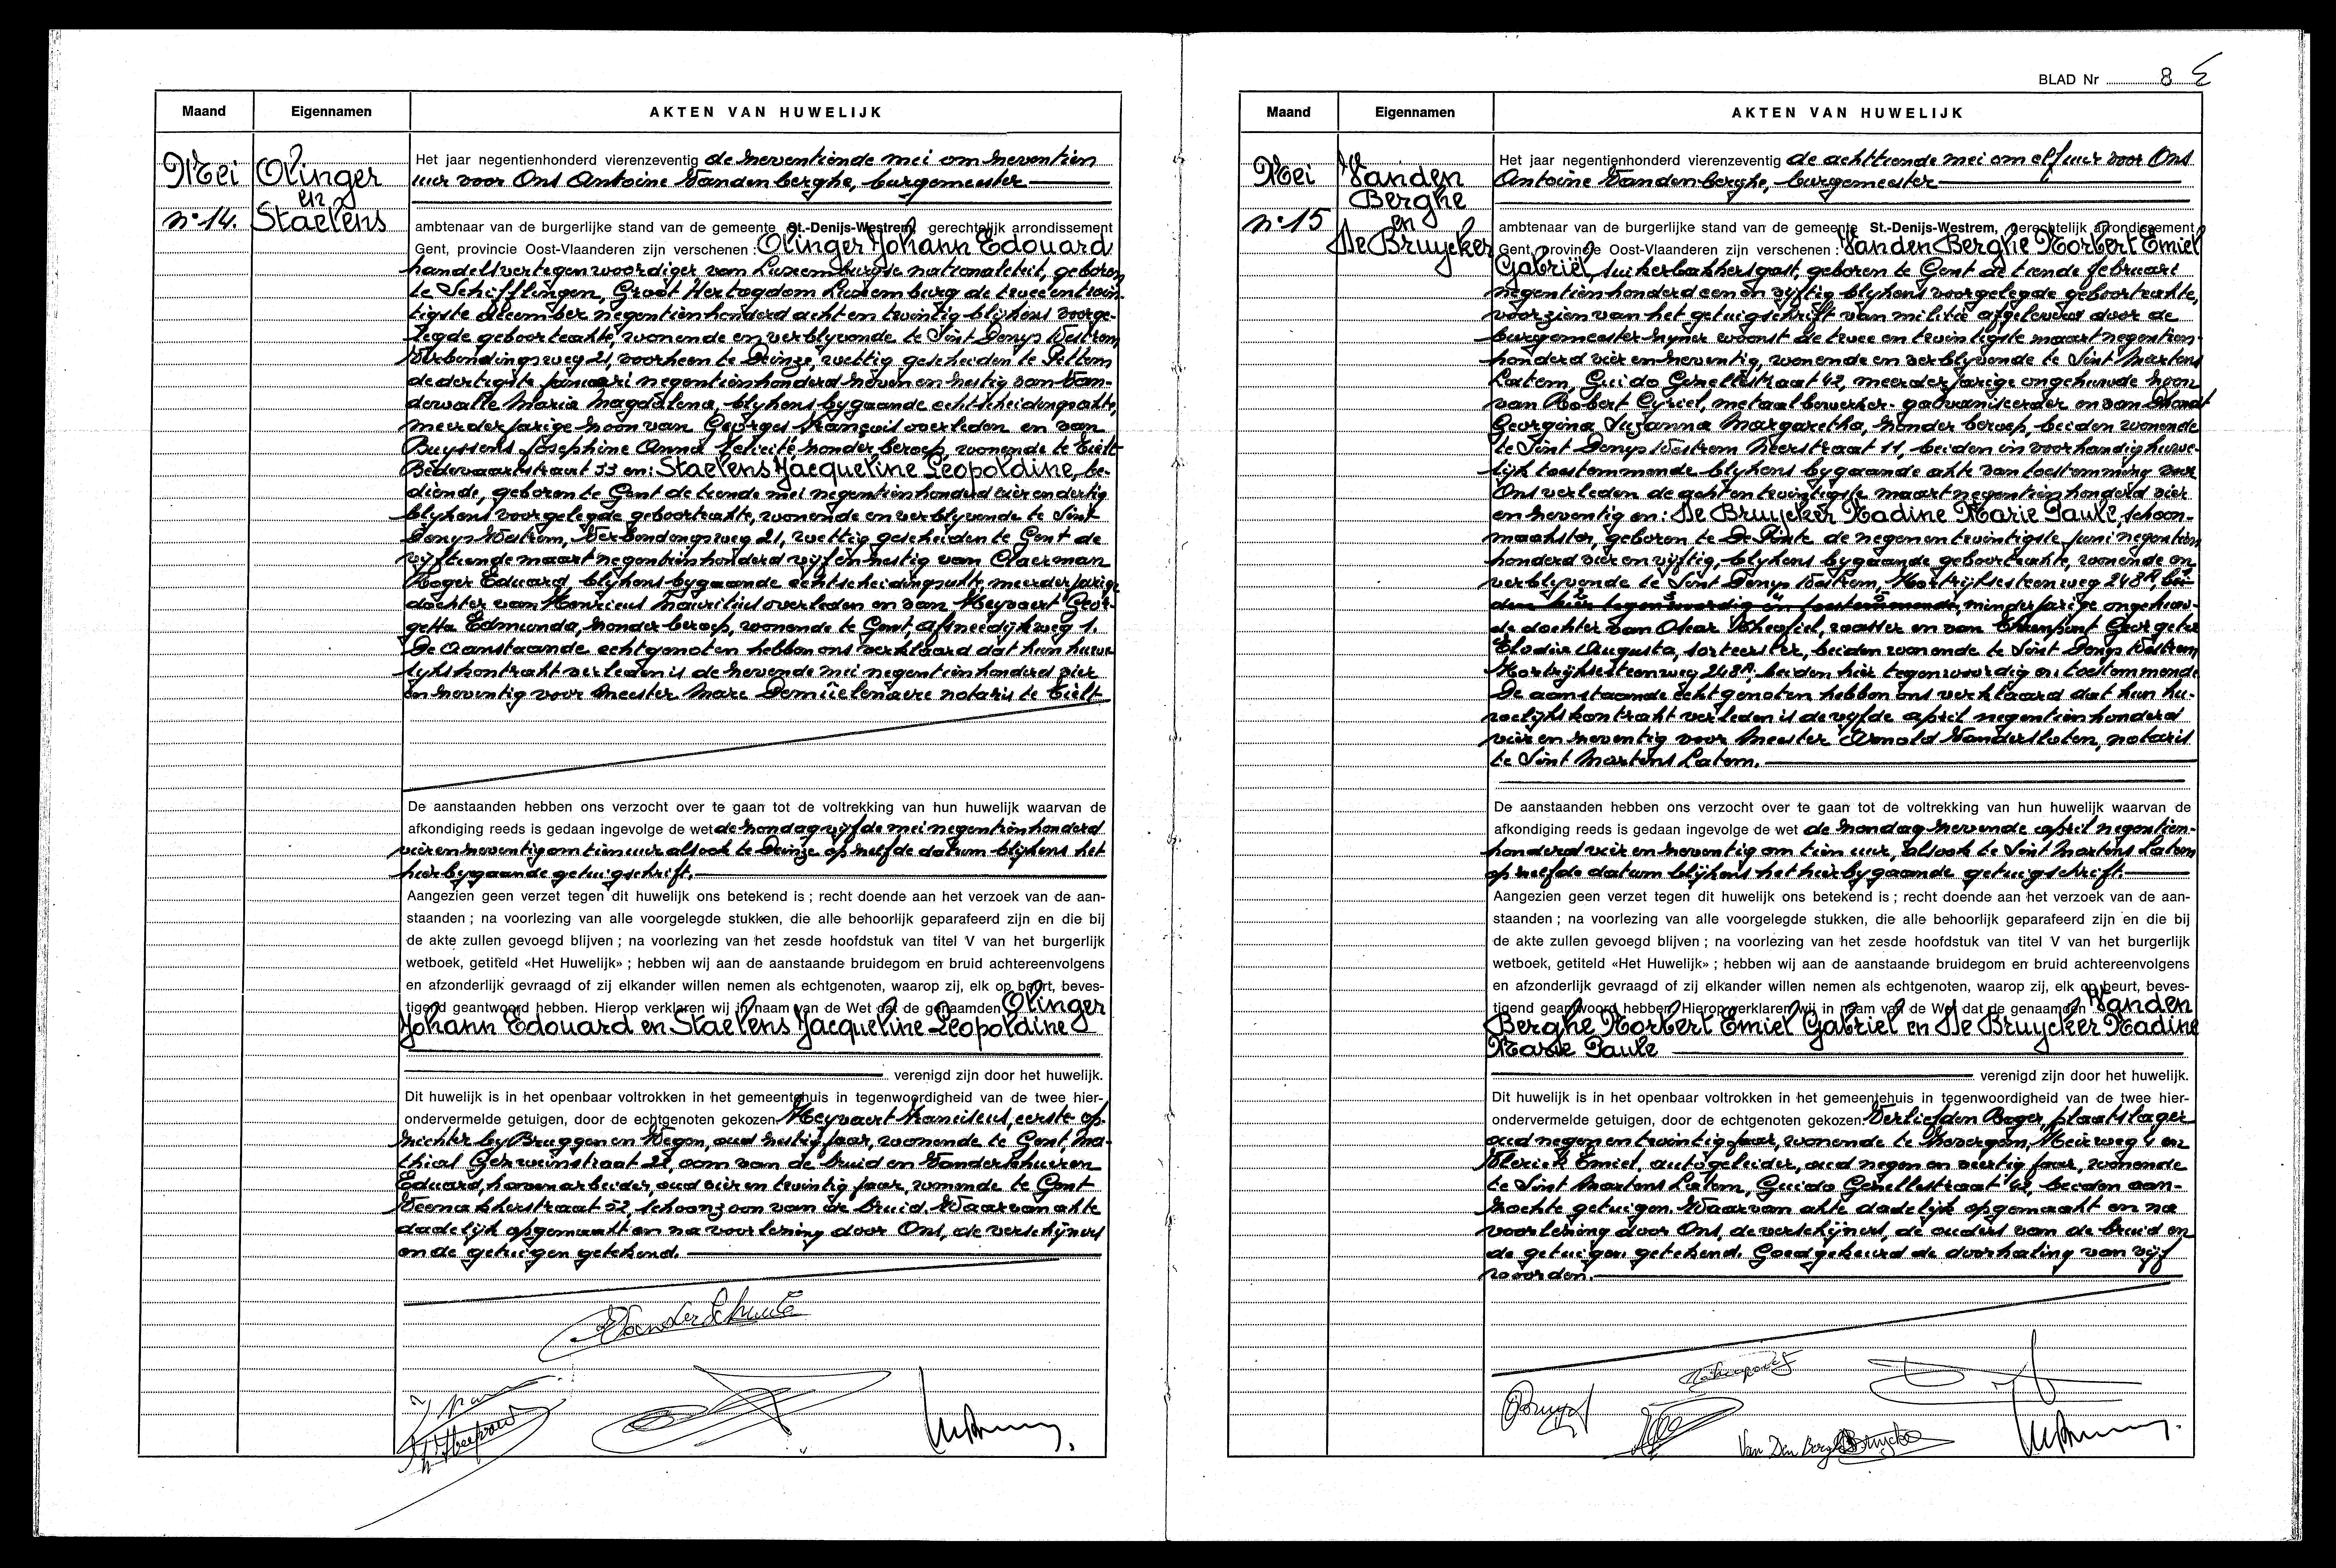 Maand Eigennamen AKTEN VAN HUWELIJK
Mei
n° 14.
Olinger
en
Staelens
Het jaar negentienhonderd vierenzeventig de zeventiende mei om zeventien
uur voor Ons Antoine Vandenberghe, burgemeester
ambtenaar van de burgerlijke stand van de gemeente St.-Denijs-Westrem, gerechtelijk arrondissement
Gent, provincie Oost-Vlaanderen zijn verschenen : Olinger Johann Edouard
handelsvertegenwoordiger van Luxemburgse nationaliteit, geboren
te Schifflingen, Groot Hertogdom Luxemburg de tweeentwin-
tigste december negentienhonderd acht en twintig blijkens voorge-
legde geboorteakte, wonende en verblyvende te Sint Denys Westrem
Verbondingsweg 21, voorheen te Deinze, wettig gescheiden te Pittem
de dertigste januari negentienhonderd zeven en zestig van Van-
dewalle Maria Magdalena, blykens bygaande echtscheidingsakte,
meerderjarige zoon van Georges François overleden en van
Buyssens Josephine Anna Felicité, zonder beroep, wonende te Tielt
Bedevaartstraat 33 en: Staelens Jacqueline Leopoldine, be-
diende, geboren te Gent de tiende mei negentienhonderd vier en dertig
blykens voorgelegde geboorteakte, wonende en verblyvende te Sint
Denys Westrem, Verbondingsweg 21, wettig gescheiden te Gent de
vyftiende maart negentienhonderd vyf en zestig van Claerman
Roger Eduard blijkens bygaande echtscheidingsakte meerderjarige
dochter van Henricus Mauritius overleden en van Heyvaert Geor-
getta Edmunda, zonder beroep, wonende te Gent, Afsneedijkweg 1.
De aanstaande echtgenoten hebben ons verklaard dat hun huwe-
lykskontrakt verleden is de zevende mei negentienhonderd vier
en zeventig voor Meester Marc Demûelenaere notaris te Tielt
De aanstaanden hebben ons verzocht over te gaan tot de voltrekking van hun huwelijk waarvan de
afkondiging reeds is gedaan ingevolge de wet de zondag vijfde mei negentienhonderd
vier en zeventig om tien uur alsook te Deinze op zelfde datum blijkens het
hierbygaande getuigschrift.
Aangezien geen verzet tegen dit huwelijk ons betekend is ; recht doende aan het verzoek van de aan-
staanden ; na voorlezing van alle voorgelegde stukken, die alle behoorlijk geparafeerd zijn en die bij
de akte zullen gevoegd blijven ; na voorlezing van het zesde hoofdstuk van titel V van het burgerlijk
wetboek, getiteld «Het Huwelijk» ; hebben wij aan de aanstaande bruidegom en bruid achtereenvolgens
en afzonderlijk gevraagd of zij elkander willen nemen als echtgenoten, waarop zij, elk op beurt, beves-
tigend geantwoord hebben. Hierop verklaren wij in naam van de Wet dat de genaamden Olinger
Johann Edouard en Staelens Jacqueline Leopoldine
verenigd zijn door het huwelijk.
Dit huwelijk is in het openbaar voltrokken in het gemeentehuis in tegenwoordigheid van de twee hier-
ondervermelde getuigen, door de echtgenoten gekozen. Heyvaert Franciscus, eerste op-
zichter by Bruggen en Wegen, oud zestig jaar, wonende te Gent, Ma-
thias Geirweinstraat 22, oom van de bruid en Vanderschueren
Eduard, havenarbeider, oud vier en twintig jaar, wonende te Gent
straat 52, schoonzoon van de bruid. Waarvan akte
dadelijk opgemaakt en na voorlezing door Ons, de verschijners
en de getuigen getekend.
BLAD Nr 8
Maand Eigennamen AKTEN VAN HUWELIJK
Mei
n° 15
Vanden
Berghe
en
De Bruycker
Het jaar negentienhonderd vierenzeventig de achttiende mei om elf uur voor Ons
Antoine Vandenberghe, burgemeester
ambtenaar van de burgerlijke stand van de gemeente St.-Denijs-Westrem, gerechtelijk arrondissement
Gent, provincie Oost-Vlaanderen zijn verschenen : Vanden Berghe Norbert Emiel
Gabriël, suikerbakkersgast, geboren te Gent de tiende februari
negentienhonderd een en vyftig blykens voorgelegde geboorteakte,
voorzien van het getuigschrift van militie afgeleverd door de
burgemeester zyner woonst de twee en twintigste maart negentien-
honderd vier en zeventig, wonende en verblyvende te Sint Martens
Latem, Guido Gezellestraat 42, meerderjarige ongehuwde zoon
van Robert Cyriel, metaalbewerker-galvaniseerder en van Dhont
Georgina Suzanna Margaretha, zonder beroep, beiden wonende
te Sint Denys Westrem Neerstraat 11, beiden in voorhandig huwe-
lijk toestemmende blykens bygaande akte van toestemming voor
Ons verleden de acht en twintigste maart negentienhonderd vier
en zeventig en: De Bruycker Nadine Marie Paule, schoon-
maakster, geboren te De Pinte de negen en twintigste juni negentien
honderd vier en vijftig, blijkens bygaande geboorteakte, wonende en
verblyvende te Sint Denys Westrem, Kortrijksesteenweg 248A, bei-
den hier tegenwoordig en toestemmende, minderjarige ongehuw-
de dochter van Oscar Theofiel, wasser en van Ehrenpont Georgette
Elodia Augusta, sorteerster, beiden wonende te Sint Denys Westrem
Kortrijksesteenweg 248A, beiden hier tegenwoordig en toestemmende
De aanstaande echtgenoten hebben ons verklaard dat hun hu-
welijkskontrakt verleden is de vyfde april negentienhonderd
vier en zeventig voor Meester Arnold Vandersloten, notaris
te Sint Martens Latem.
De aanstaanden hebben ons verzocht over te gaan tot de voltrekking van hun huwelijk waarvan de
afkondiging reeds is gedaan ingevolge de wet de zondag zevende april negentien-
honderd vier en zeventig om tien uur, alsook te Sint Martens Latem
op zelfde datum blijkens het hierbygaande getuigschrift.
Aangezien geen verzet tegen dit huwelijk ons betekend is ; recht doende aan het verzoek van de aan-
staanden ; na voorlezing van alle voorgelegde stukken, die alle behoorlijk geparafeerd zijn en die bij
de akte zullen gevoegd blijven ; na voorlezing van het zesde hoofdstuk van titel V van het burgerlijk
wetboek, getiteld «Het Huwelijk» ; hebben wij aan de aanstaande bruidegom en bruid achtereenvolgens
en afzonderlijk gevraagd of zij elkander willen nemen als echtgenoten, waarop zij, elk op beurt, beves-
tigend geantwoord hebben. Hierop verklaren wij in naam van de Wet dat de genaamden Vanden
Berghe Norbert Emiel Gabriel en De Bruycker Nadine
Marie Paule
verenigd zijn door het huwelijk.
Dit huwelijk is in het openbaar voltrokken in het gemeentehuis in tegenwoordigheid van de twee hier-
ondervermelde getuigen, door de echtgenoten gekozen. Verliefden Roger, plaatslager
oud negen en twintig jaar, wonende te Zevergem, Meirweg 4 en
Vlerick Emiel, autogeleider, oud negen en veertig jaar, wonende
te Sint Martens Latem, Guido Gezellestraat 42, beiden aan-
zochte getuigen. Waarvan akte dadelijk opgemaakt en na
voorlezing door Ons, de verschijners, de ouders van de bruid en
de getuigen getekend. Goedgekeurd de doorhaling van vijf
woorden.
Van Den Berghe